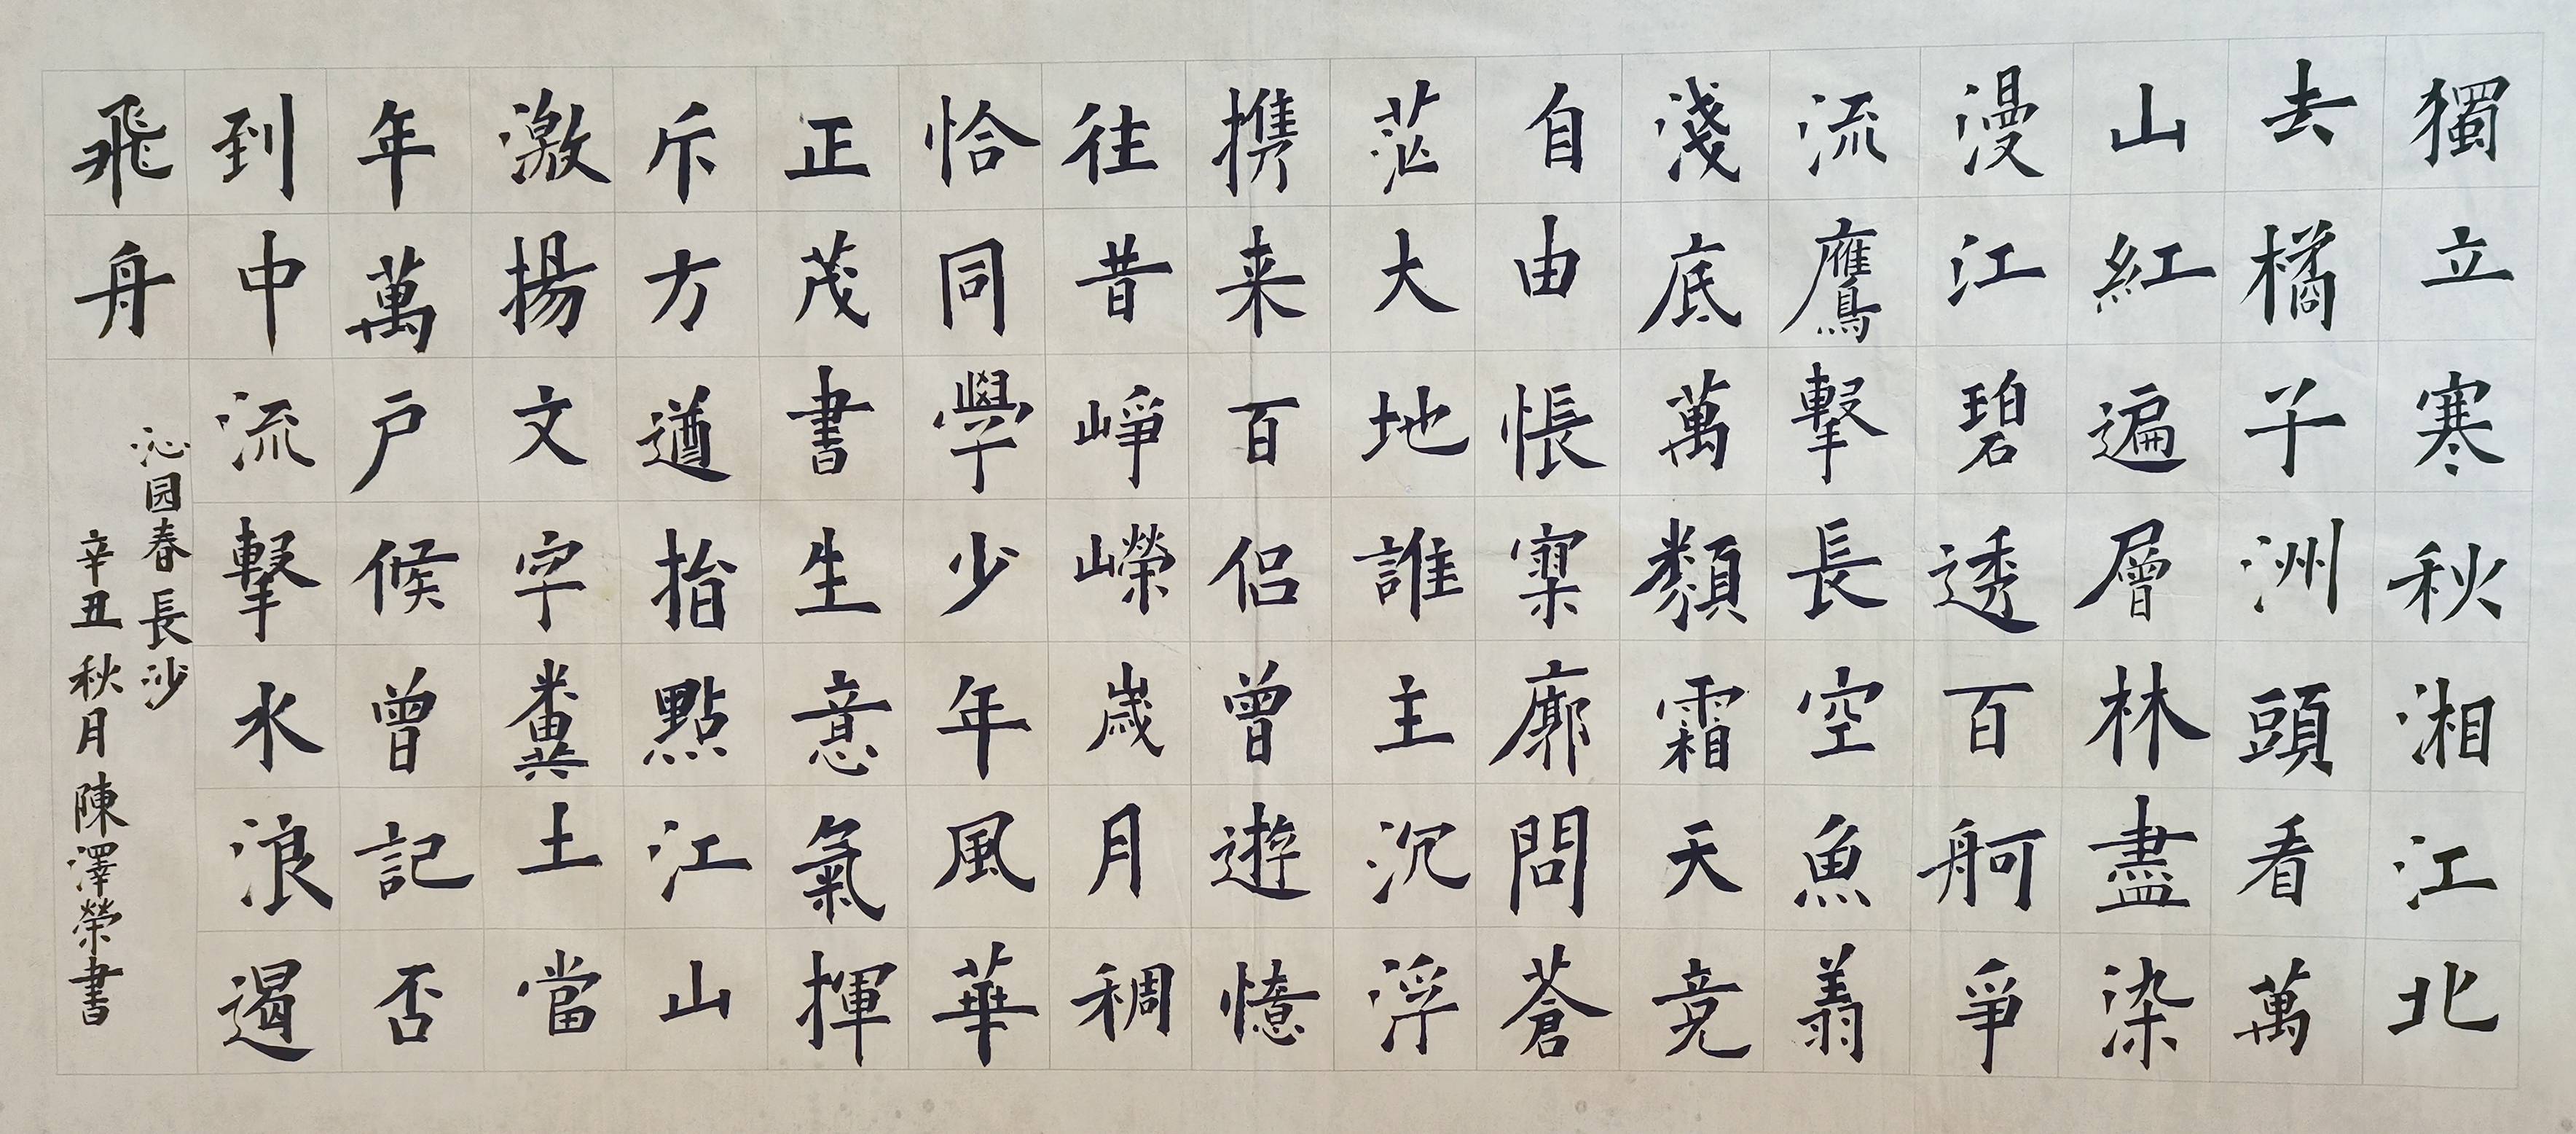 獨立寒秋湘江北
去橘子洲頭看萬
山紅遍層林盡染
漫江碧透百舸爭
流鷹擊長空魚翥
淺底萬類霜天竞
自由悵寥廓問蒼
茫大地誰主沉浮
携来百侣曾遊憶
往昔崢嶸崴月稠
恰同學少年風華
正茂書生意氣揮
斥方遒指點江山
激揚文字糞土當
年萬户候曾記否
到中流擊水浪遏
飛舟
沁园春長沙
辛丑秋月陳澤榮書